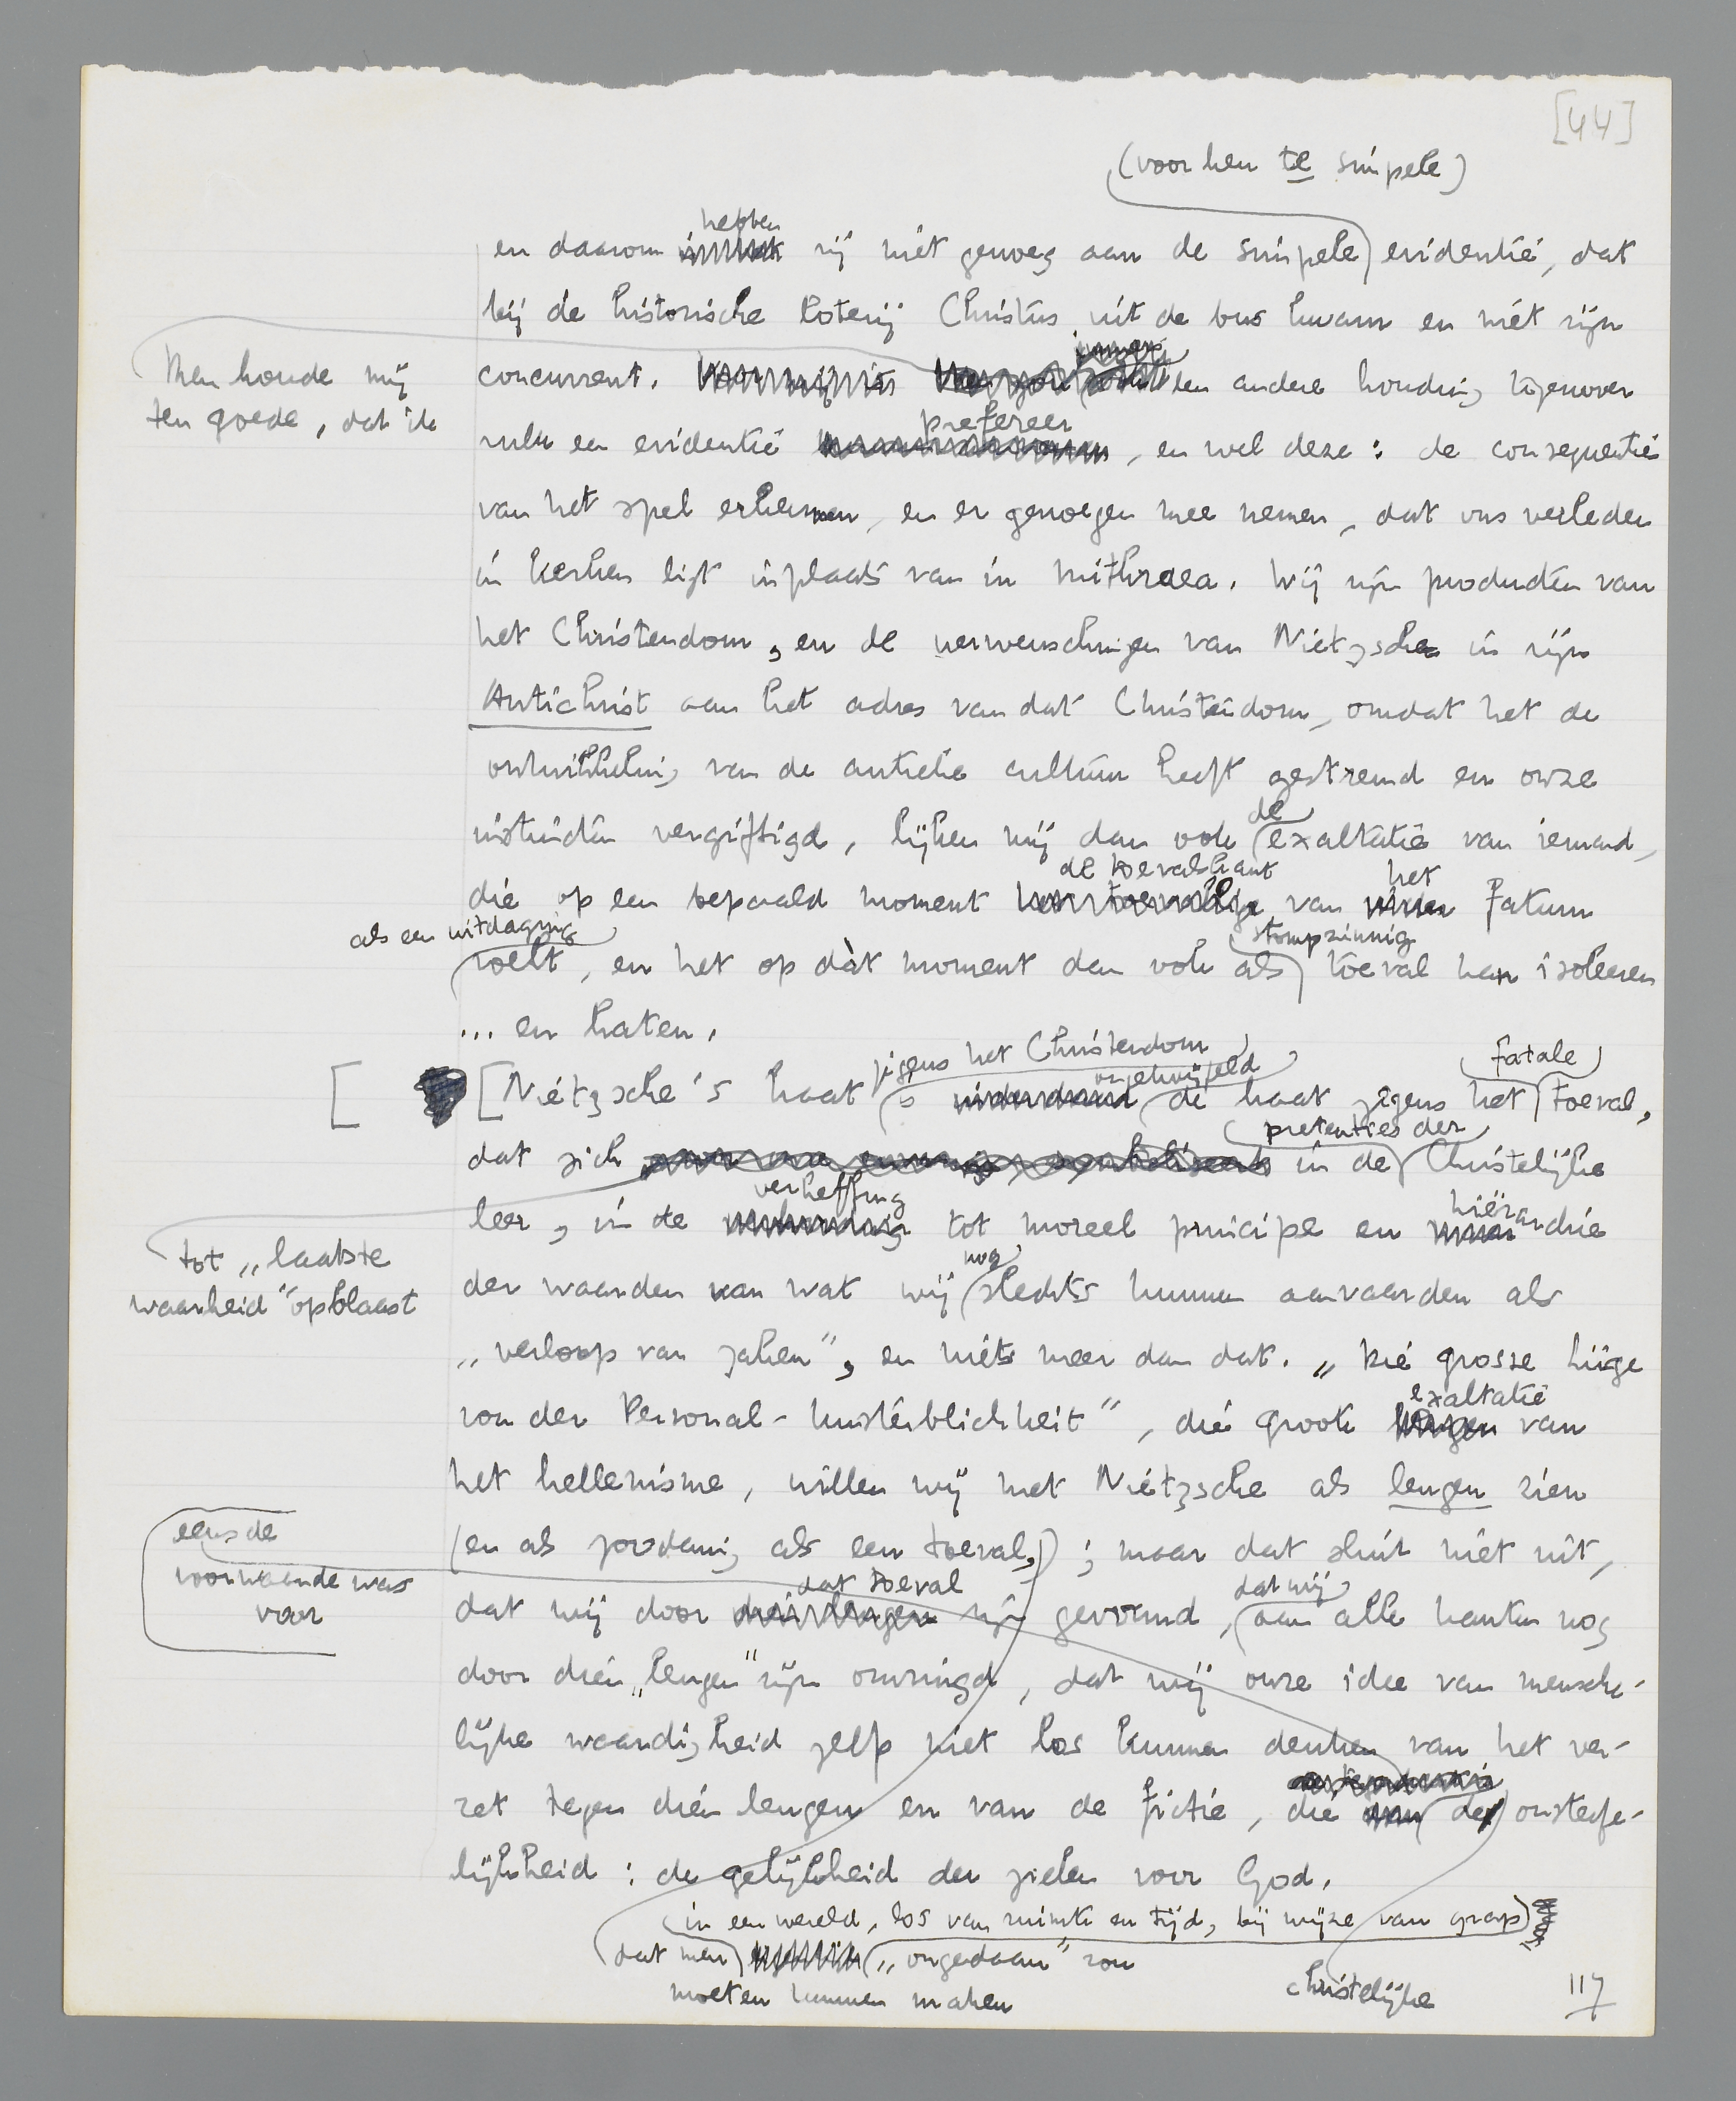 [44]
(voor hen te simpele)
hebben
en daarom zij niet genoeg aan de simpele evidentie, dat
bij de historische loterij Christus uit de bus kwam en niet zijn
Men houde mij
ten goede, dat ik
concurrent. een andere houding tegenover
prefereer
zulk een evidentie , en wel deze: de consequenties
van het spel erkennen, en er genoegen mee nemen, dat ons verleden
in kerken ligt inplaats van in mithraea. Wij zijn producten van
het Christendom, en de verwenschingen van Nietzsche in zijn
Antichrist aan het adres van dat Christendom, omdat het de
ontwikkeling van de antieke cultuur heeft geremd en onze
de
instincten vergiftigd, lijken mij dan ook exaltatie van iemand,
de toevalskant het
die op een bepaald moment van fatum
als een uitdaging stompzinnig
voelt, en het op dàt moment dan ook als toeval kan isoleeren
... en haten.
jegens het Christendom ongetwijfeld fatale
[ [Nietzsche's haat is de haat jegens het toeval,
pretenties der
dat zich in de Christelijke
verheffing hiërar
leer, in de tot moreel principe en chie
tot „laatste
waarheid" opblaast
nog
der waarden van wat wij slechts kunnen aanvaarden als
„verloop van zaken", en niets meer dan dat. „Die grosse Lüge
exaltatie
von der Personal-Unsterblichkeit", die groote van
het hellenisme, willen wij met Nietzsche als leugen zien
eens de
voorwaarde was
voor
(en als zoodanig als een toeval,) ; maar dat sluit niet uit,
dat toeval dat wij
dat wij door zijn gevormd, aan alle kanten nog
door dien „leugen" zijn omringd, dat wij onze idee van mensche-
lijke waardigheid zelf niet los kunnen denken van het ver-
zet tegen dien leugen en van de fictie, die de onsterfe-
lijkheid : de gelijkheid der zielen voor God.
(in een wereld, los van ruimte en tijd, bij wijze van grap)
dat men „ongedaan" zou
moeten kunnen maken
christelijke
117